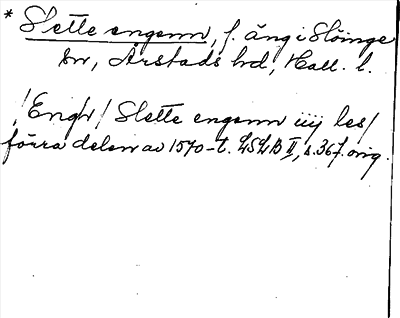 * Slette engenn, f. äng i Slöinge
sn, Årstads hd, Hall. l.
/Engh/ Slette engenn iiij les/
förra delen av 1570-t. LSLB II, s. 367. orig.